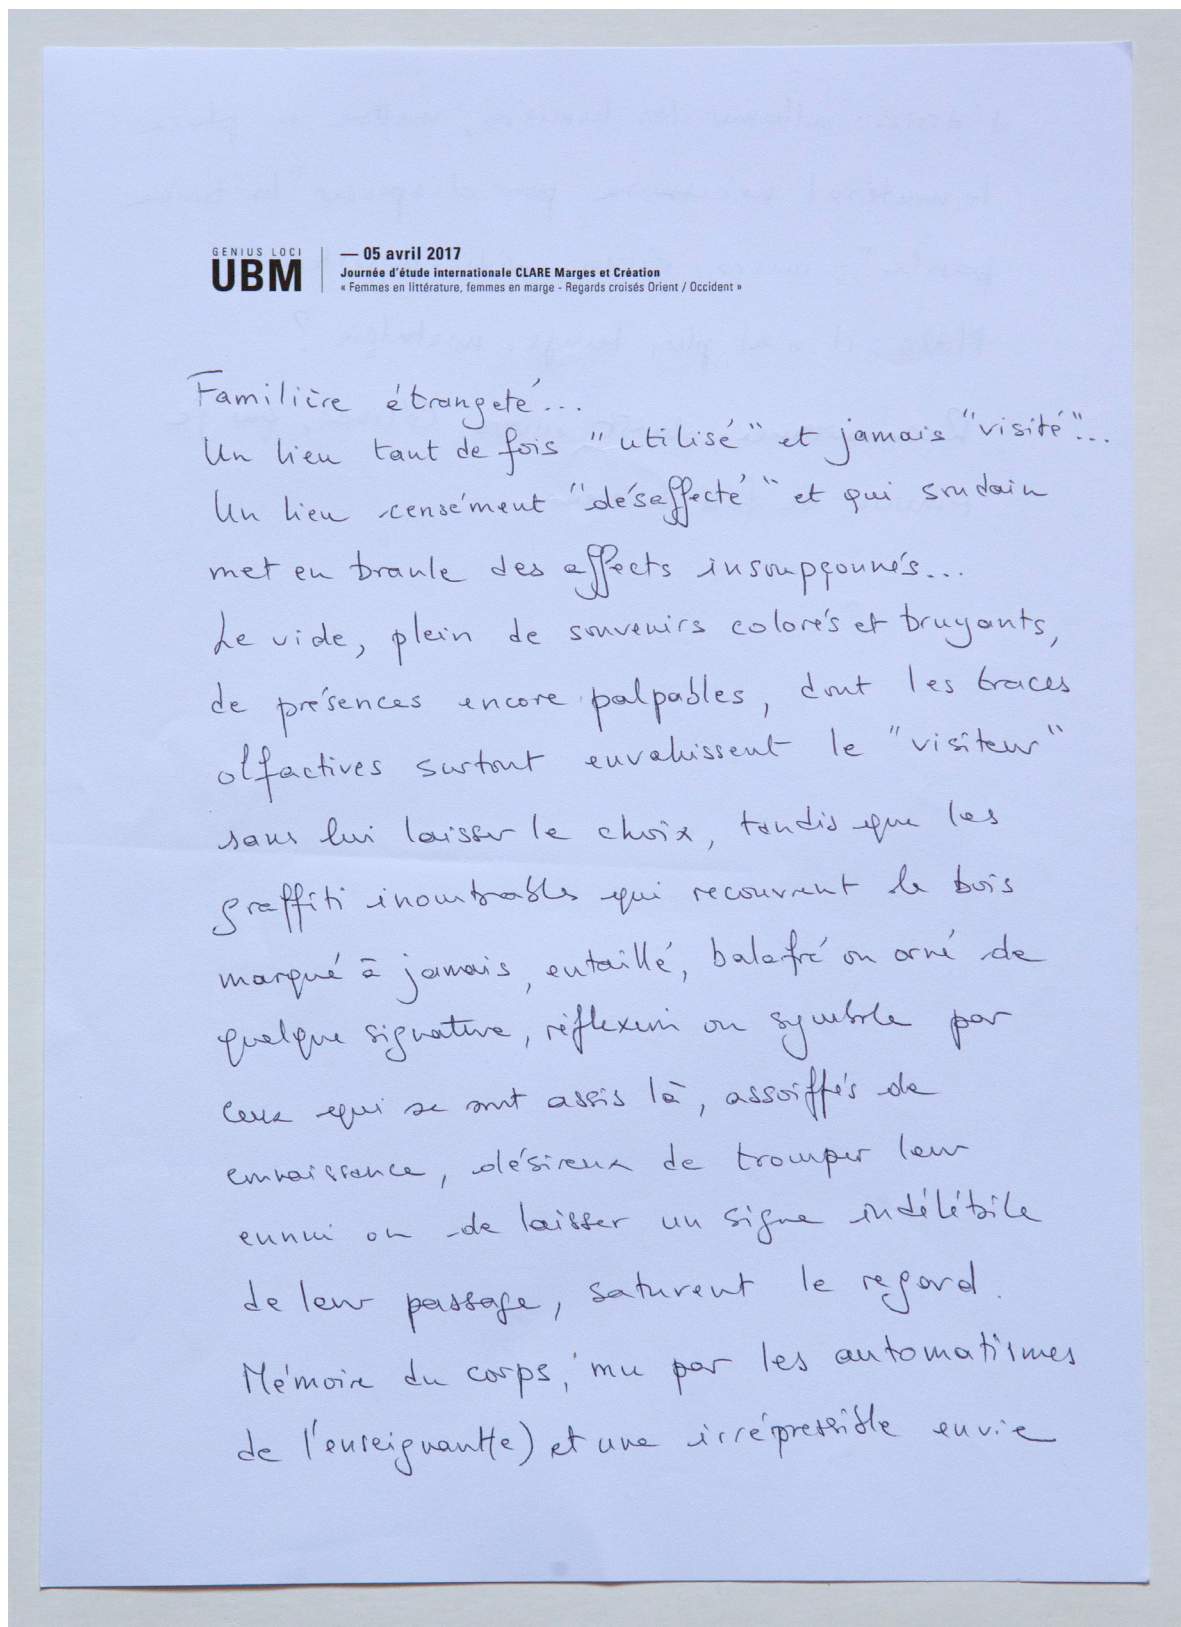 GENIUS LOCI
UBM
— 05 avril 2017
Journée d'étude internationale CLARE Marges et Création
« Femmes en littérature, femmes en marge - Regards croisés Orient / Occident »
Familière étrangeté...
Un lieu tant de fois "utilisé" et jamais "visité"...
Un lieu censément "désaffecté" et qui soudain
met en branle des affects insoupçonnés...
Le vide, plein de souvenirs colorés et bruyants,
de présences encore palpables, dont les traces
olfactives surtout envahissent le "visiteur"
sans lui laisser le choix, tandis que les
graffiti inombrables qui recouvrent le bois
marqué à jamais, entaillé, balafré ou orné de
quelque signature, réflexion ou symbole par
ceux qui se sont assis là, assoiffés de
connaissance, désireux de tromper leur
ennui ou de laisser un signe indélébile
de leur passage, saturent le regard.
Mémoire du corps, mu par les automatismes
de l'enseignant(e) et une irrépressible envie